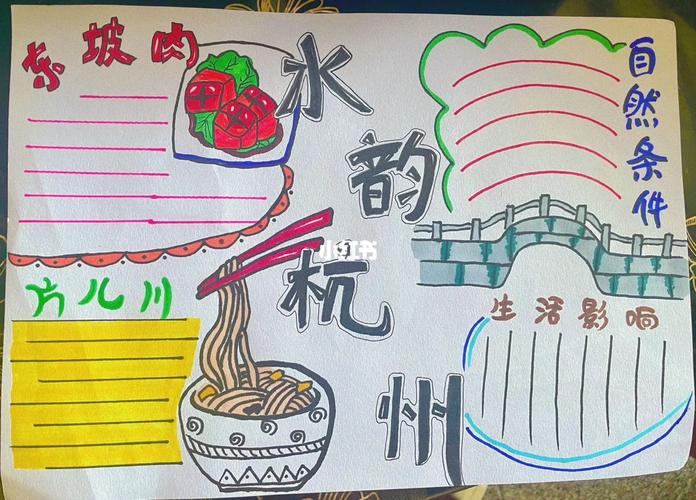 东坡肉
水韵杭州
自然条件
小红书
方儿川
生活影响